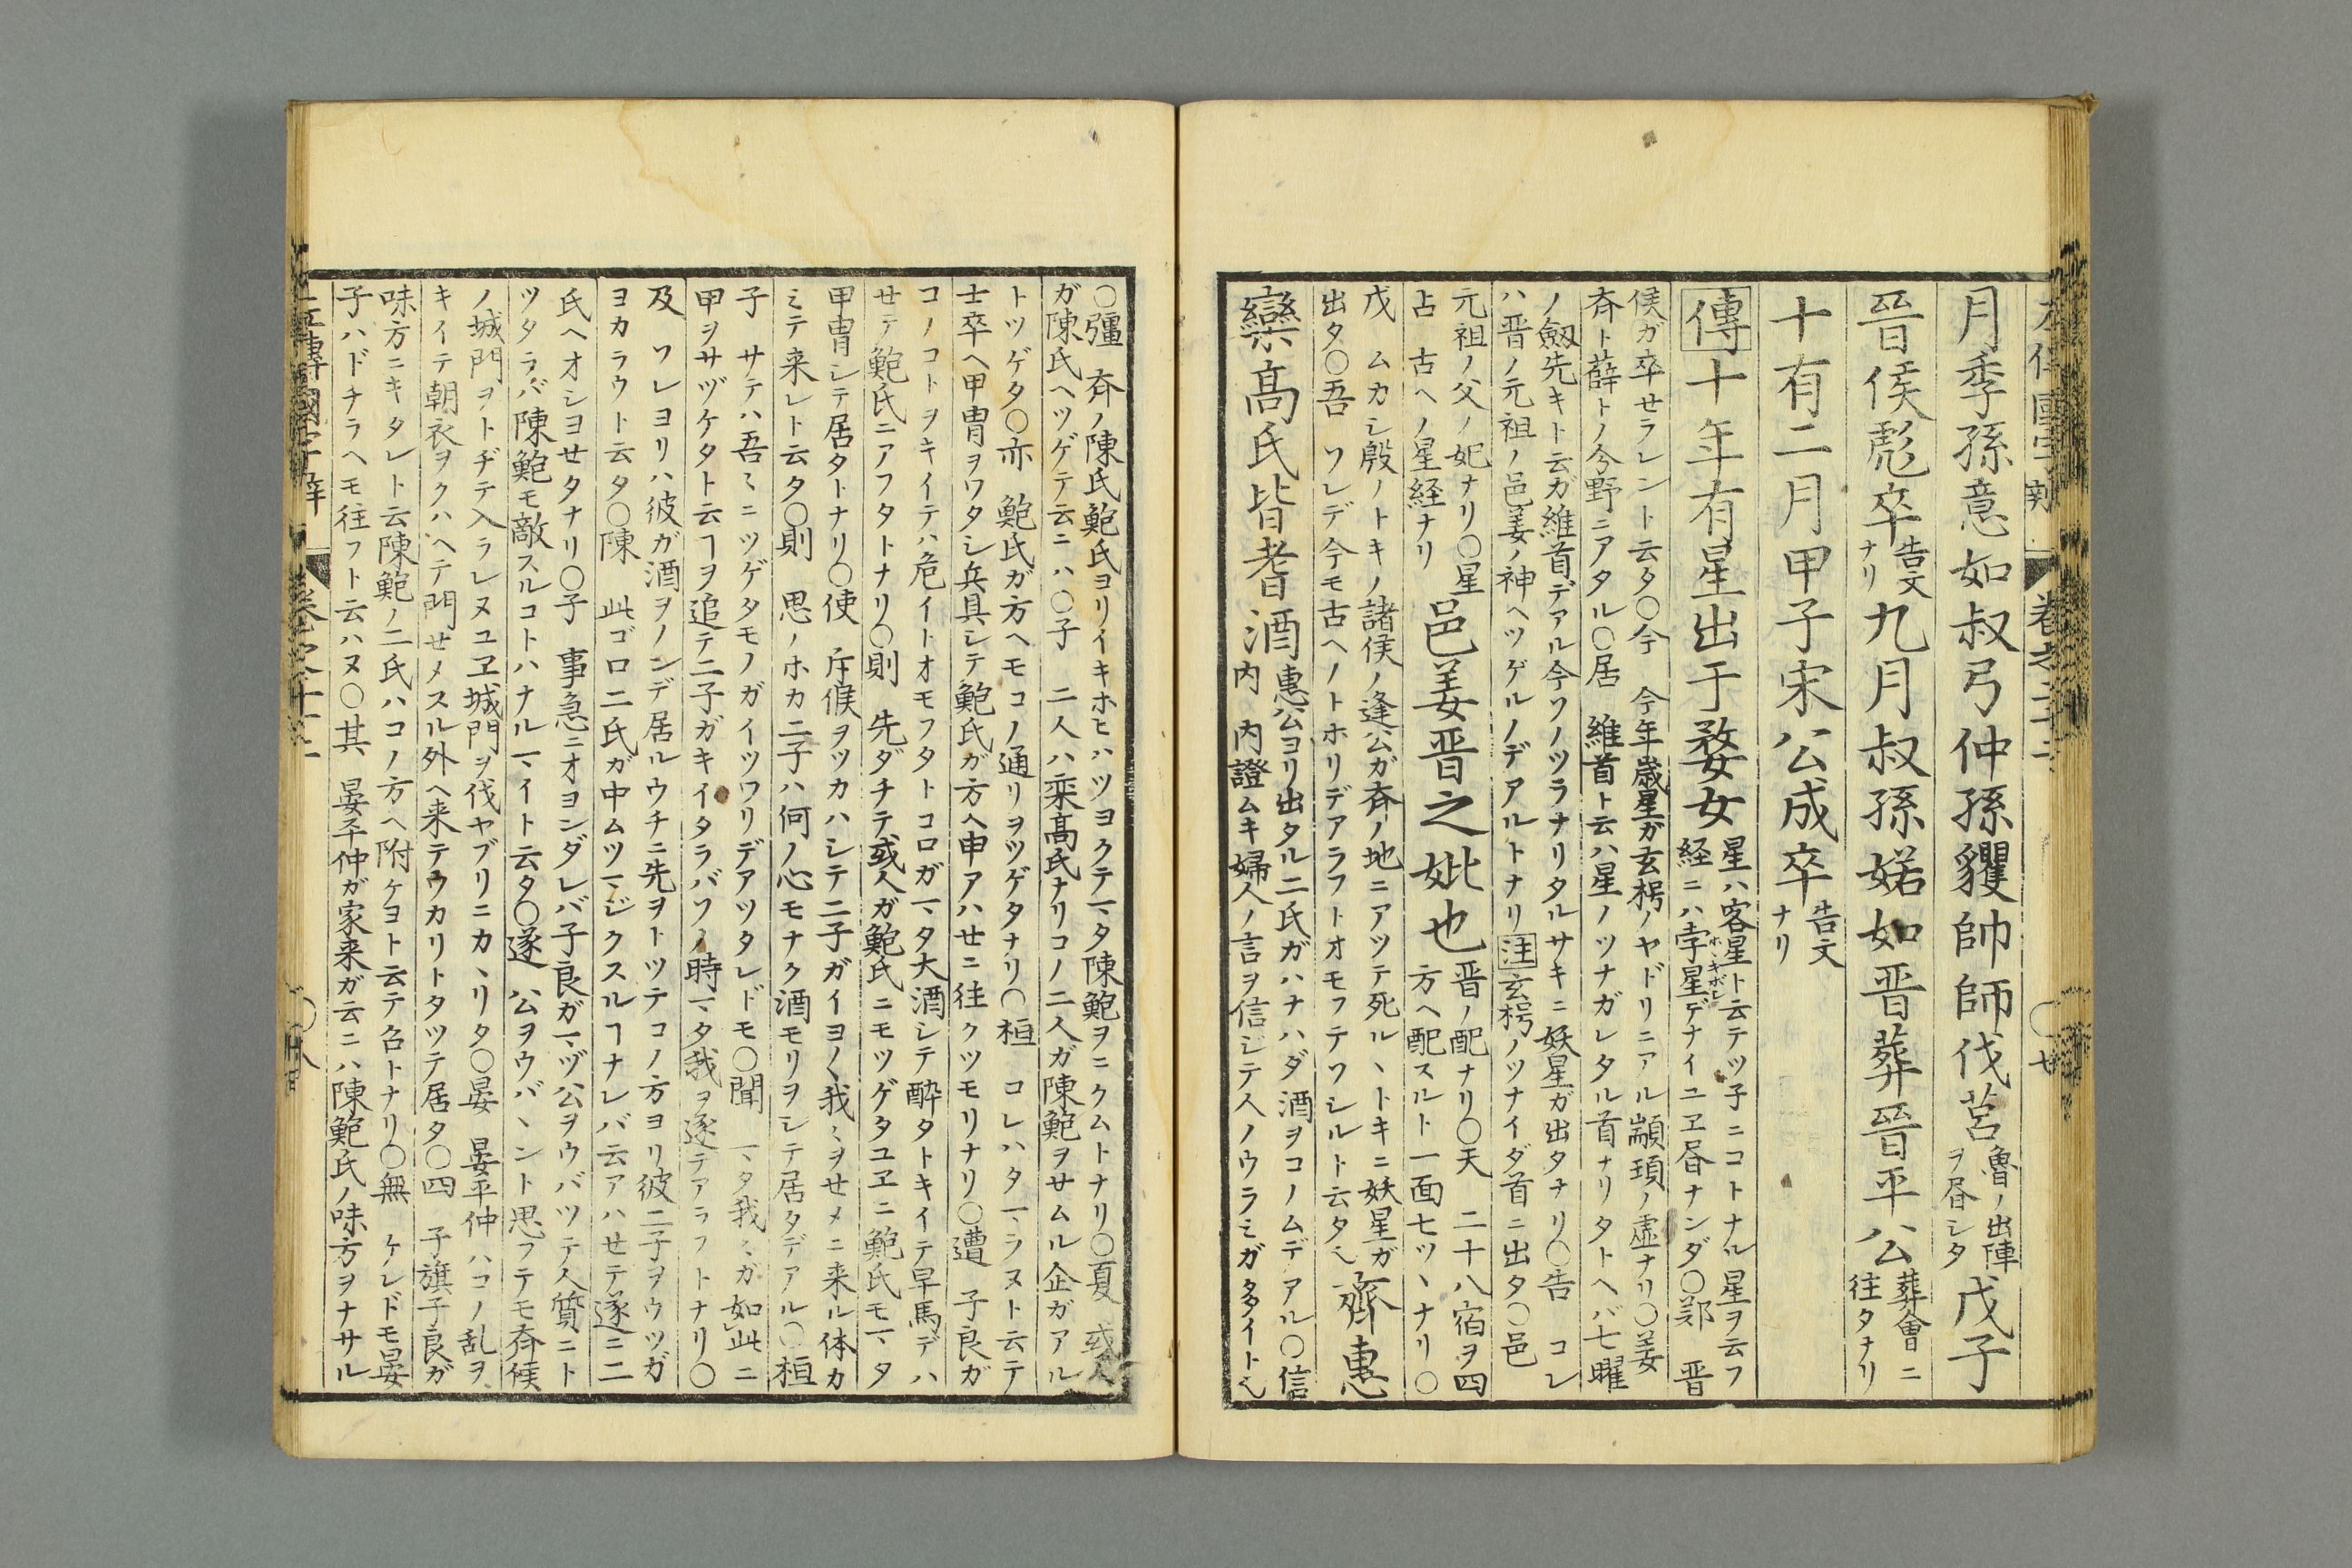 左傳國字解 卷之二十二 ○廿
月季孫意如叔弓仲孫貜帥師伐莒魯ノ出陣ヲ昏シタ戊子
晉侯彪卒告文ナリ九月叔孫婼如晋葬晉平公葬會ニ往タナリ
十有二月甲子宋公成卒告文ナリ
傳十年有星出于婺女星ハ客星ト云テツ子ニコトナル星ヲ云フ
経ニハ孛星デナイユヱ昏ナンダ○鄭 晋
侯ガ卒セラレント云タ○今 今年歳星ガ玄枵ノヤドリニアル顓頊ノ虚ナリ○姜
斉ト薛トノ今野ニアタル○居 維首ト云ハ星ノツナガレタル首ナリタトヘバ七曜
ノ劔先キト云ガ維首デアル今ワノツラナリタルサキニ妖星ガ出タナリ○告 コレ
ハ晋ノ元祖ノ邑姜ノ神ヘツゲルノデアルトナリ注玄枵ノツナイダ首ニ出タ○邑
元祖ノ父ノ妃ナリ○星
占 古ヘノ星経ナリ
邑姜晋之妣也晋ノ配ナリ○天 二十八宿ヲ四
方ヘ配スルト一面七ツヽナリ○
戊 ムカシ殷ノトキノ諸侯ノ逢公ガ斉ノ地ニアツテ死ルヽトキニ妖星ガ
出タ○吾 ワレデ今モ古ヘノトホリデアラフトオモフテワシルト云タ也
齊惠
欒高氏皆耆酒惠公ヨリ出タル二氏ガハナハダ酒ヲコノムデアル○信
内 内證ムキ婦人ノ言ヲ信ジテ人ノウラミガ多イト也
○彊 斉ノ陳氏鮑氏ヨリイキホヒハツヨクテマタ陳鮑ヲニクムトナリ○夏 或人
ガ陳氏ヘツゲテ云ニハ○子 二人ハ栾高氏ナリコノ二人ガ陳鮑ヲサムル企ガアル
トツゲタ○亦 鮑氏ガ方ヘモコノ通リヲツゲタナリ○桓 コレハタマラヌト云テ
士卒ヘ甲冑ヲワタシ兵具シテ鮑氏ガ方ヘ申アハセニ往クツモリナリ○遭 子良ガ
コノコトヲキイテハ危イトオモフタトコロガマタ大酒シテ酔タトキイテ早馬デハ
セテ鮑氏ニアフタトナリ○則 先ダチテ或人ガ鮑氏ニモツゲタユヱニ鮑氏モマタ
甲冑シテ居タトナリ○使 斥候ヲツカハシテ二子ガイヨ〱我〻ヲセメニ来ル体カ
ミテ来レト云タ○則 思ノホカ二子ハ何ノ心モナク酒モリヲシテ居タデアル○桓
子 サテハ吾〻ニツゲタモノガイツワリデアツタレドモ○聞 マタ我〻ガ如此ニ
甲ヲサヅケタト云ヿヲ追テ二子ガキイタラバソノ時マタ我ヲ逐テアラフトナリ○
及 ワレヨリハ彼ガ酒ヲノンデ居ルウチニ先ヲトツテコノ方ヨリ彼二子ヲウツガ
ヨカラウト云タ○陳 此ゴロ二氏ガ中ムツマジクスルヿナレバ云アハセテ遂ニ二
氏ヘオシヨセタナリ○子 事急ニオヨンダレバ子良ガマヅ公ヲウバツテ人質ニト
ツタラバ陳鮑モ敵スルコトハナルマイト云タ○遂 公ヲウバヽント思フテモ斉侯
ノ城門ヲトヂテ入ラレヌユヱ城門ヲ伐ヤブリニカヽリタ○晏 晏平仲ハコノ乱ヲ
キイテ朝衣ヲクハヘテ門セメスル外ヘ来テウカリトタツテ居タ○四 子旗子良ガ
味方ニキタレト云陳鮑ノ二氏ハコノ方ヘ附ケヨト云テ召トナリ○無 ケレドモ晏
子ハドチラヘモ往フト云ハヌ○其 晏平仲ガ家来ガ云ニハ陳鮑氏ノ味方ヲナサル